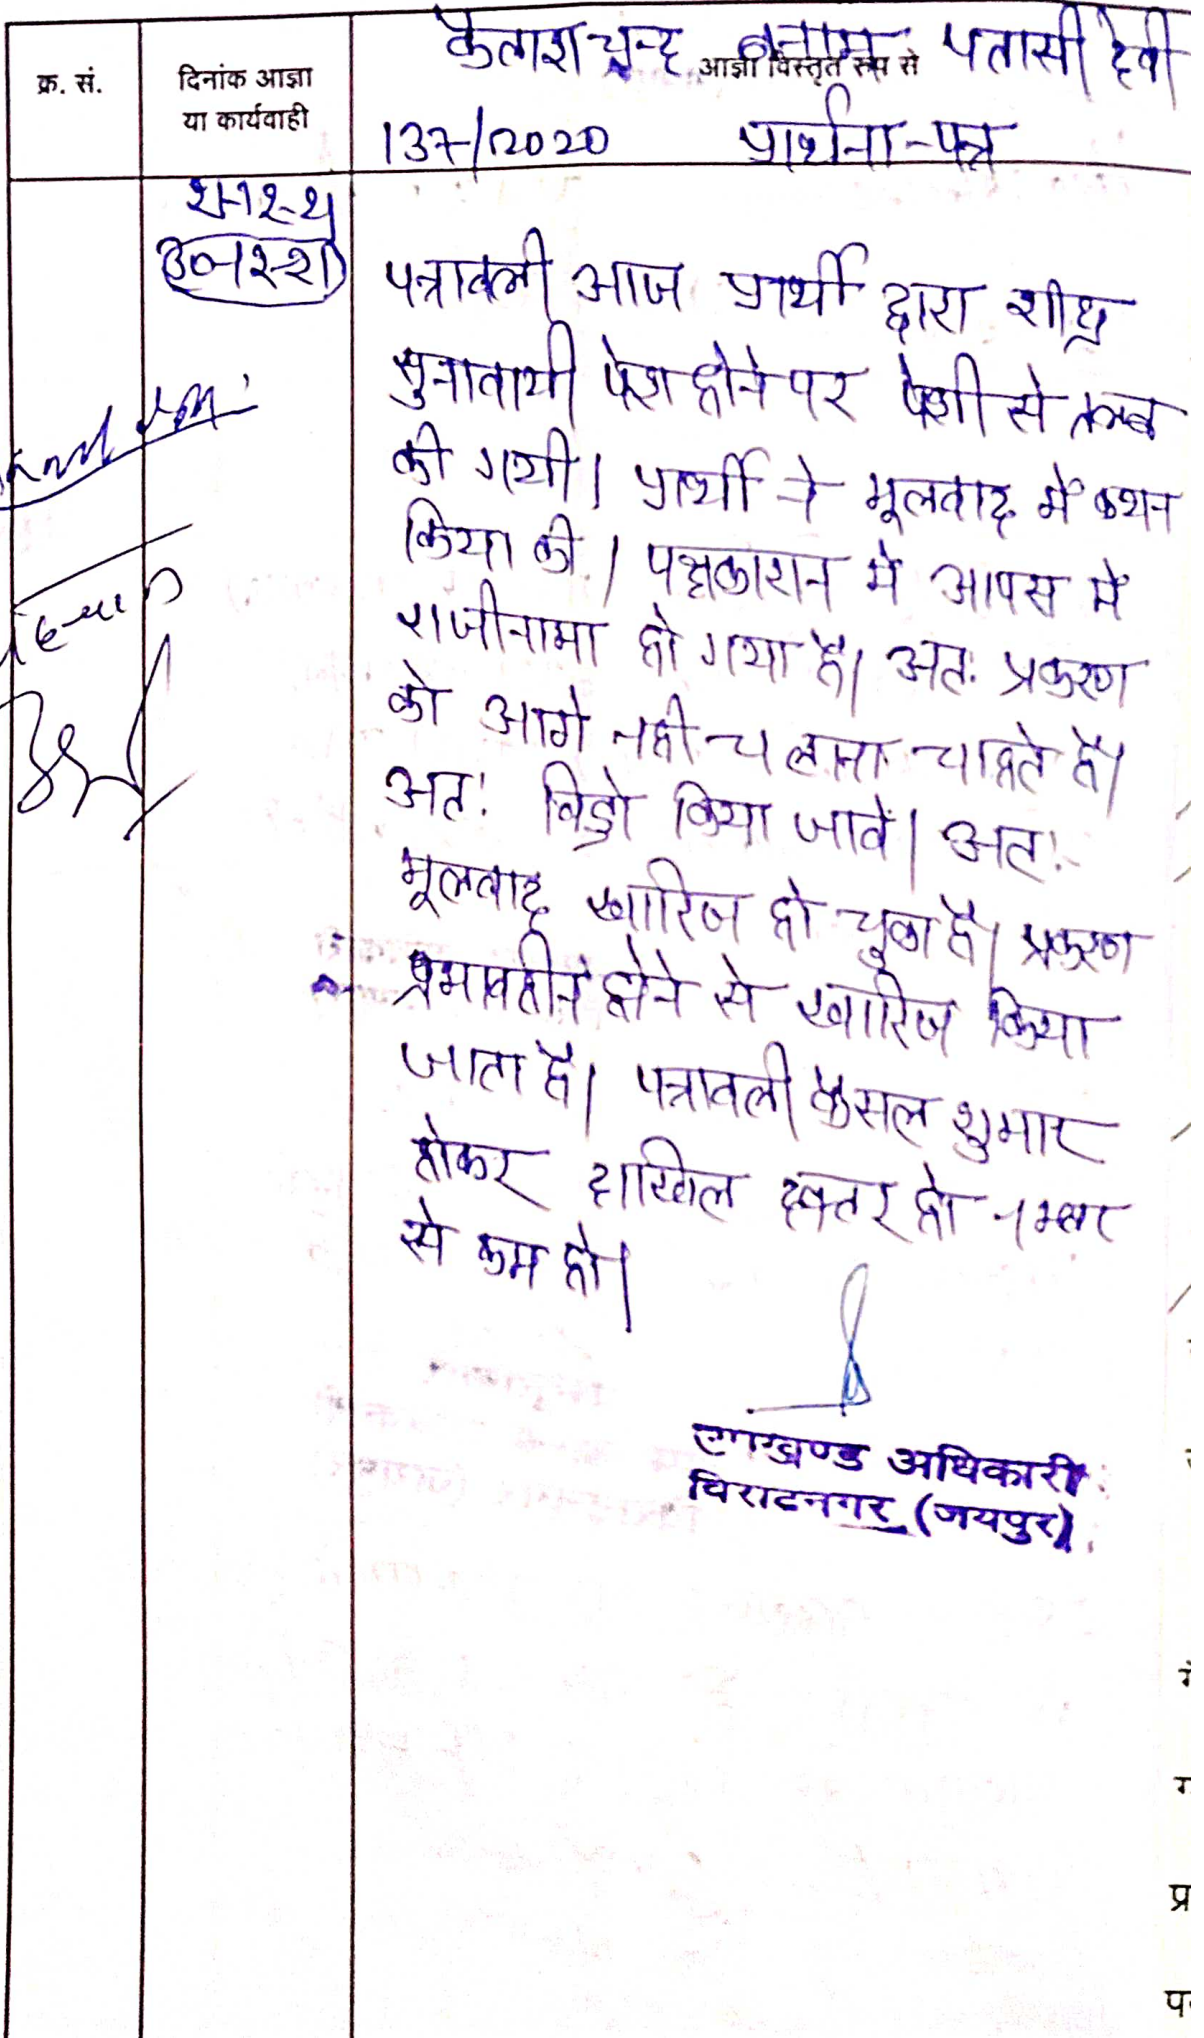 कैलाश चन्द बनाम पतासी देवी
क्र. सं.
दिनांक आज्ञा
या कार्यवाही
आज्ञा विस्तृत रूप से
137/2020 प्रार्थना-पत्र
पत्रावली आज प्रार्थी द्वारा शीघ्र
सुनावायी पेश होने पर पेशी से तलब
की गयी। प्रार्थी ने मूलवाद में कथन
किया की। पक्षकारान मे आपस में
राजीनामा हो गया है। अतः प्रकरण
को आगे नही चलाना चाहते है।
अतः विड्रो किया जावें। अतः
मूलवाद खारिज हो चुका है। प्रकरण
प्रभावहीन होने से खारिज किया
जाता है। पत्रावली फैसल शुमार
होकर दाखिल दफ्तर हो नम्बर
से कम हो।
उपखण्ड अधिकारी
विराटनगर (जयपुर)